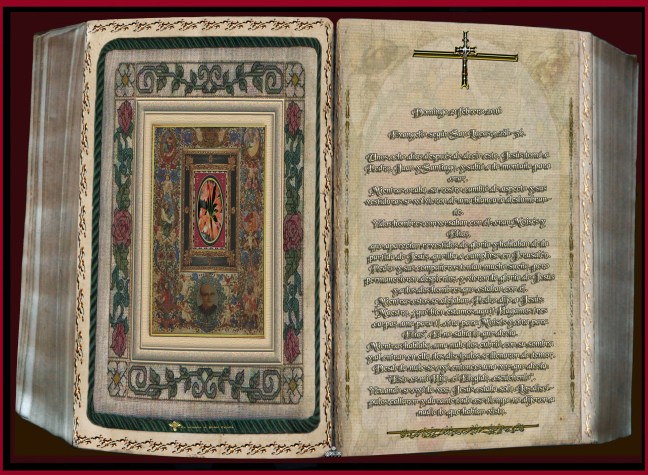 Domingo 21 febrero 2016
Evangelio según San Lucas 9,28b-36.
Unos ocho días después de decir esto, Jesús tomó a
Pedro, Juan y Santiago, y subió a la montaña para
orar.
Mientras oraba, su rostro cambió de aspecto y sus
vestiduras se volvieron de una blancura deslumbran-
te.
Y dos hombres conversaban con él: eran Moisés y
Elías,
que aparecían revestidos de gloria y hablaban de la
partida de Jesús, que iba a cumplirse en Jerusalén.
Pedro y sus compañeros tenían mucho sueño, pero
permanecieron despiertos, y vieron la gloria de Jesús
y a los dos hombres que estaban con él.
Mientras estos se alejaban, Pedro dijo a Jesús:
"Maestro, ¡qué bien estamos aquí! Hagamos tres
carpas, una para ti, otra para Moisés y otra para
Elías". Él no sabía lo que decía.
Mientras hablaba, una nube los cubrió con su sombra
y al entrar en ella, los discípulos se llenaron de temor.
Desde la nube se oyó entonces una voz que decía:
"Este es mi Hijo, el Elegido, escúchenlo".
Y cuando se oyó la voz, Jesús estaba solo. Los discí-
pulos callaron y durante todo ese tiempo no dijeron a
nadie lo que habían visto.